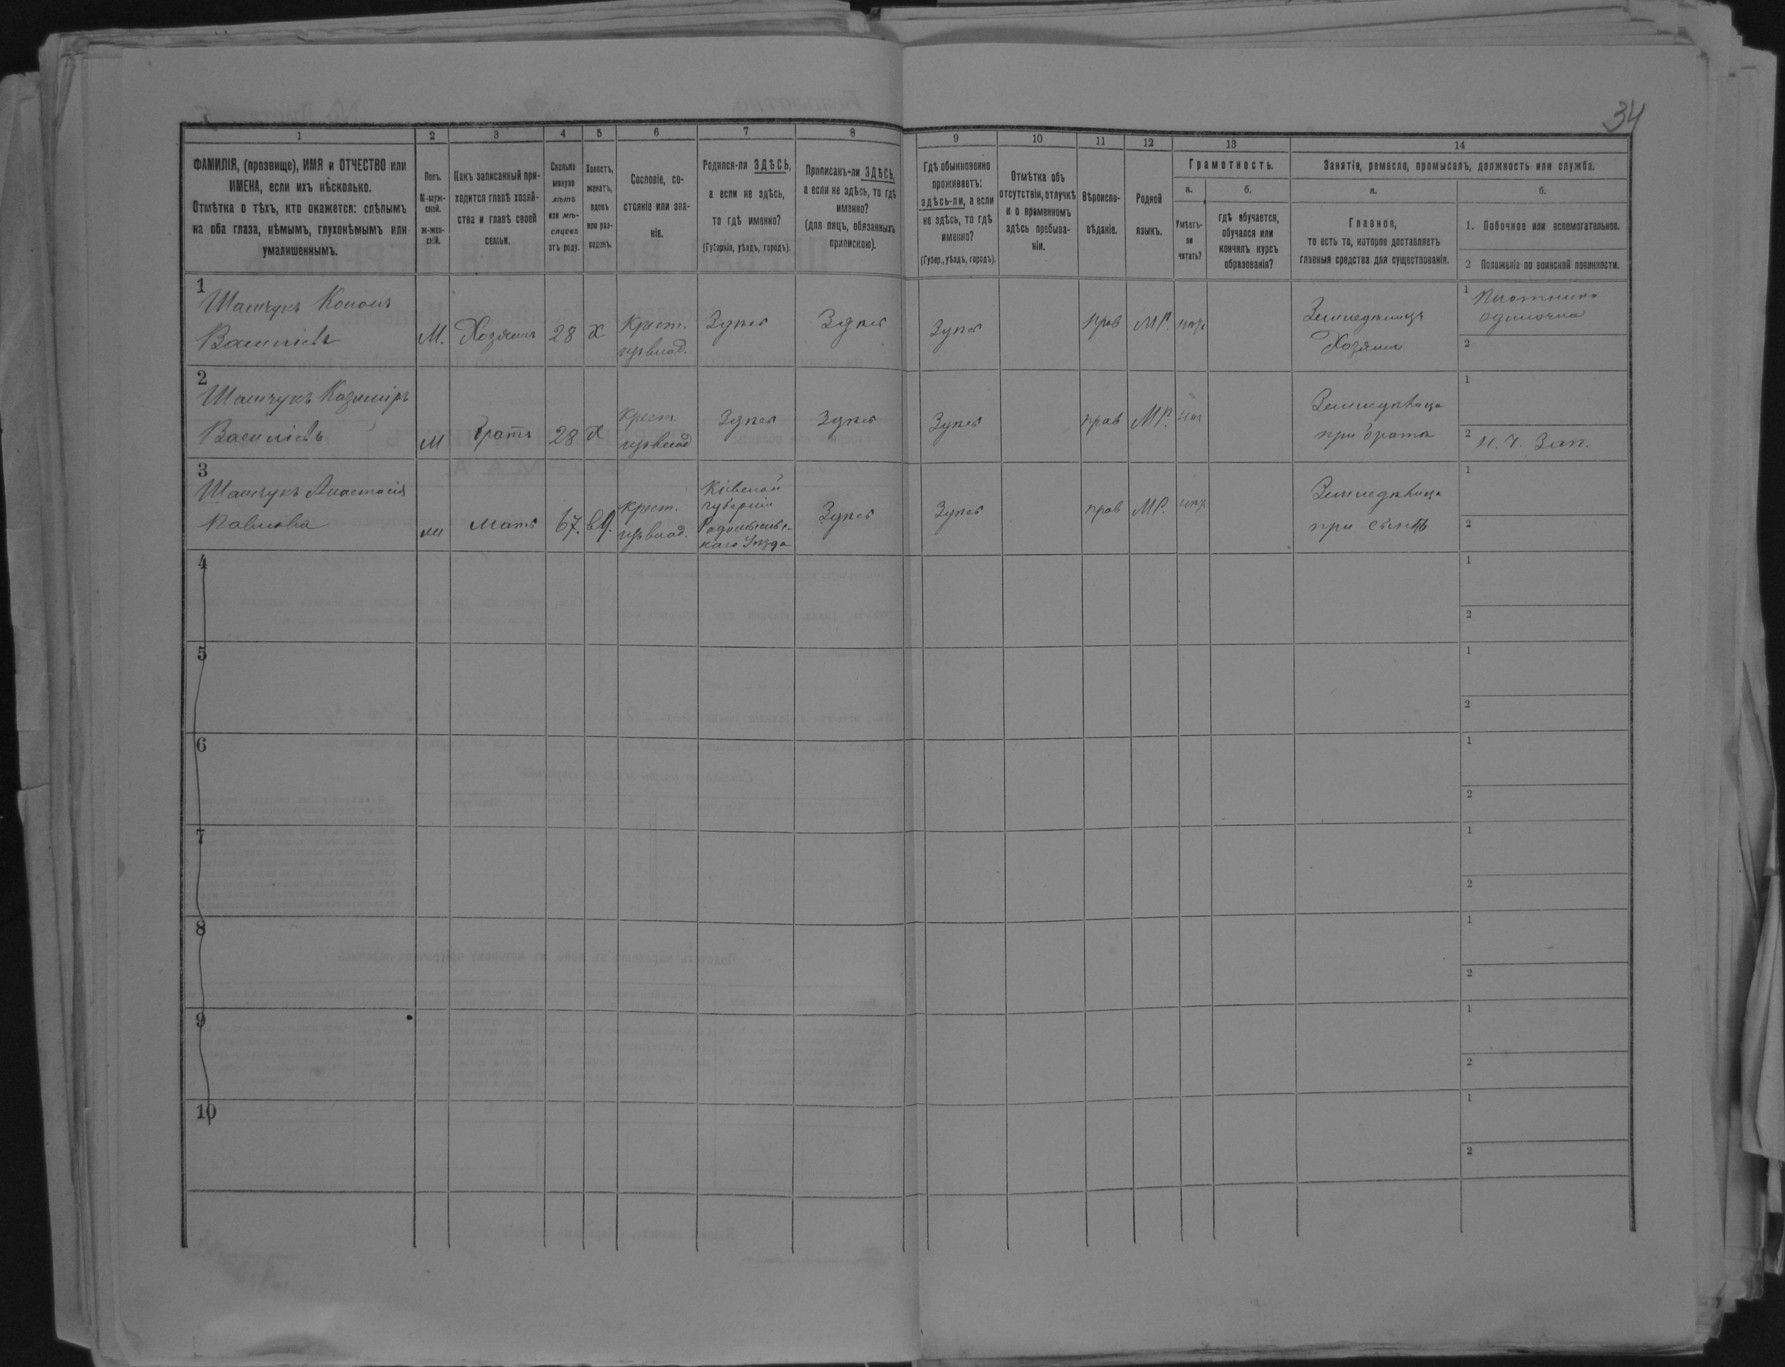 34
1 2 3 4 5 6 7 8 9 10 11 12 13 14
ФАМИЛІЯ, (прозвище), ИМЯ и ОТЧЕСТВО или
ИМЕНА, если ихъ нѣсколько.
Отмѣтка о тѣхъ, кто окажется: слѣпымъ
на оба глаза, нѣмымъ, глухонѣмымъ или
умалишеннымъ.
Полъ.
М-муж-
ской.
ж-жен-
скій.
Какъ записанный при-
ходится главѣ хозяй-
ства и главѣ своей
семьи.
Сколько
минуло
лѣтъ
или мѣ-
сяцевъ
отъ роду.
Холостъ,
женатъ,
вдовъ
или раз-
веденъ.
Сословіе, со-
стояніе или зва-
ніе.
Родился-ли ЗДѢСЬ,
а если не здѣсь,
то гдѣ именно?
(Губернія, уѣздъ, городъ).
Приписанъ-ли ЗДѢСЬ,
а если не здѣсь, то гдѣ
именно?
(для лицъ, обязанныхъ
припискою).
Гдѣ обыкновенно
проживаетъ:
здѣсь-ли, а если
не здѣсь, то гдѣ
именно?
(Губер., уѣздъ, городъ).
Отмѣтка объ
отсутствіи, отлучкѣ
и о временномъ
здѣсь пребыва-
ніи.
Вѣроиспо-
вѣданіе.
Родной
языкъ.
Грамотность.
а.
Умѣетъ-
ли
читать?
б.
гдѣ обучается,
обучался или
кончилъ курсъ
образованія?
Занятіе, ремесло, промыселъ, должность или служба.
а.
Главное,
то есть то, которое доставляетъ
главныя средства для существованія.
б.
1. Побочное или вспомогательное.
2 Положеніе по воинской повинности.
1
Шамчукъ Кононъ
Васильевъ
М. Хозяинъ 28 х
Крест.
Здѣсь Здѣсь Здѣсь прав МР. нетъ
Земледѣлецъ
Хозяинъ
1 Плотникъ
одиночка
2
2
Шамчукъ Казиміръ
Васильевъ
М братъ 28 х
Крест
Здѣсь Здѣсь Здѣсь прав МР. нет
при братѣ
1
2
3
Шамчукъ Анастасія
Павлова
мать 67. вд.
Крест.
Кіевской
губерніи
Радомысльс-
каго Уѣзда
Здѣсь Здѣсь прав МР. нетъ
при сынѣ
1
2
4
1
2
5
1
2
6
1
2
7
1
2
8
1
2
9
1
2
10
1
2